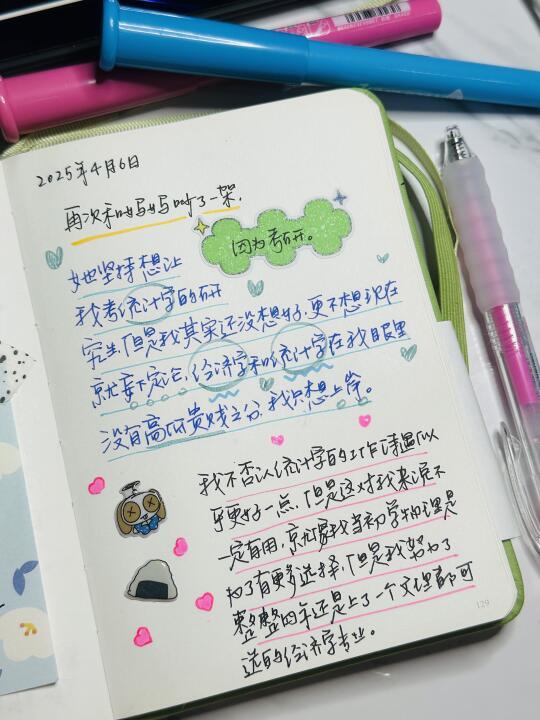 2025年4月6日
再次和妈妈吵了一架,
因为考研。
她坚持想让
我考统计学的研
究生,但是我其实还没想好,更不想现在
就要下定论,经济学和统计学在我眼里
没有高低贵贱之分,我只想上岸。
我不否认统计学的工作请温似
乎更好一点,但是这对我来说不
一定有用,就像我当初学物理是
为了有更多选择,但是我努力了
整整四年还是上了一个文理都可
选的经济学专业。
129